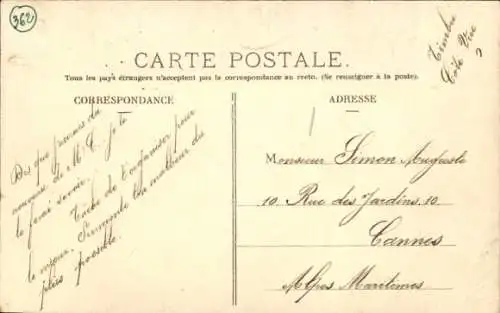 362
Timbre
Côté Vue
CARTE POSTALE.
Tous les pays étrangers n'acceptent pas la correspondance au recto. (Se renseigner à la poste).
CORRESPONDANCE
ADRESSE
Dès que j'aurais du
nouveau de M. C. je te
le ferai savoir.
Tache de t'organiser pour
le mieux. Surmonte ton malheur du
plus possible.
Monsieur Simon Auguste
10 Rue des Jardins. 10
Cannes
Alpes Maritimes